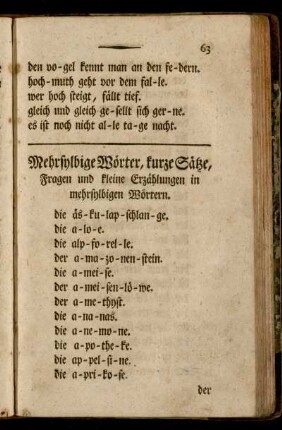 63
den vo-gel kennt man an den fe-dern.
hoch-muth geht vor dem fal-le.
wer hoch steigt, fällt tief.
gleich und gleich ge-sellt sich ger-ne.
es ist noch nicht al-le ta-ge nacht.
Mehrsylbige Wörter, kurze Sätze,
Fragen und kleine Erzählungen in
mehrsylbigen Wörtern.
die äs-ku-lap-schlan-ge.
die a-lo-e.
die alp-fo-rel-le.
der a-ma-zo-nen-stein.
die a-mei-se.
der a-mei-sen-lö-we.
der a-me-thyst.
die a-na-nas.
die a-ne-mo-ne.
die a-po-the-ke.
die ap-pel-si-ne.
die a-pri-ko-se.
der